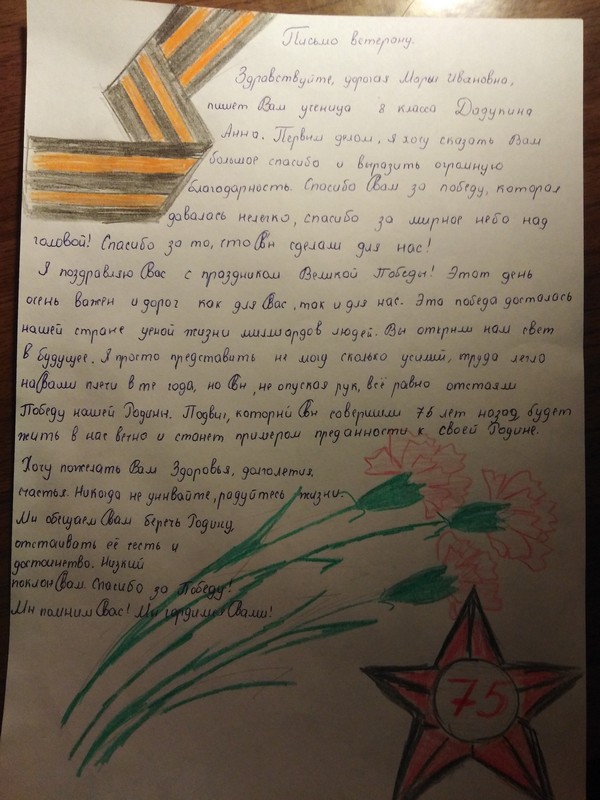 Письмо ветерану.
Здравствуйте, дорогая Марья Ивановна,
пишет Вам ученица 8 класса Дадукина
Анна. Первым делом, я хочу сказать Вам
большое спасибо и выразить огромную
благодарность. Спасибо Вам за победу, которая
давалась нелегко, спасибо за мирное небо над
головой! Спасибо за то, что Вы сделали для нас!
Я поздравляю Вас с праздником Великой Победы! Этот день
очень важен и дорог как для Вас, так и для нас. Эта победа досталась
нашей стране ценой жизни миллиардов людей. Вы открыли нам свет
в будущее. Я просто представить не могу сколько усилий, труда легло
на Вами плечи в те года, но Вы, не опуская рук, всё равно отстояли
Победу нашей Родины. Подвиг, который Вы совершили 76 лет назад, будет
жить в нас вечно и станет примером преданности к своей Родине.
Хочу пожелать Вам Здоровья, долголетия,
счастья. Никогда не унывайте, радуйтесь жизни.
Мы обещаем Вам беречь Родину,
отстаивать её честь и
достоинство. Низкий
поклон Вам. Спасибо за Победу!
Мы помним Вас! Мы гордимся Вами!
75